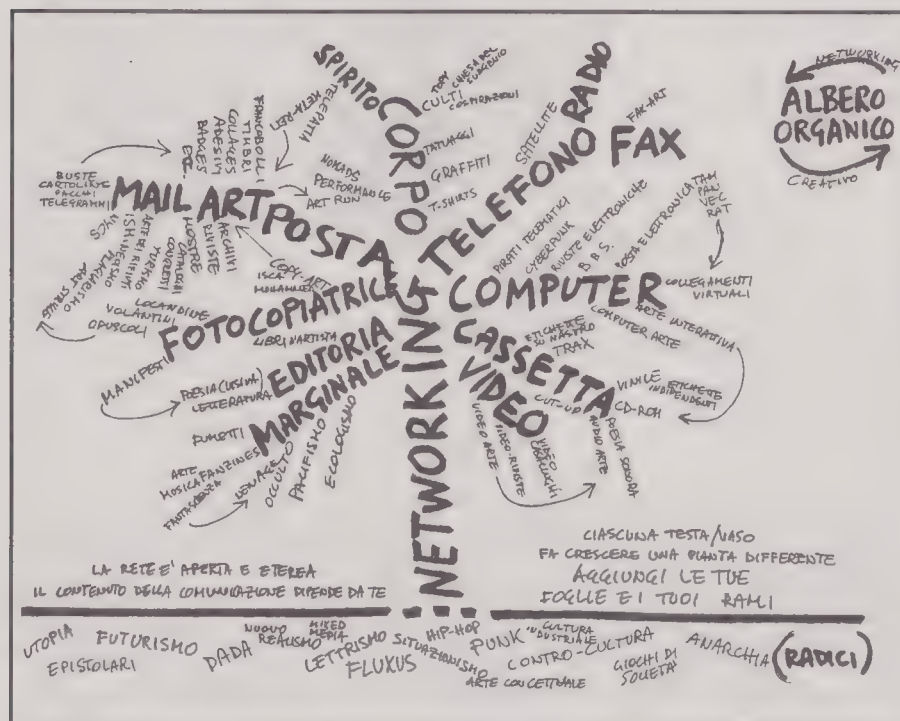 NETWORKING
ALBERO
ORGANICO
CREATIVO
SPIRITO
TELEPATIA
META-RETI
CORPO
TOPY
CHIESA DEL
SUBGENIO
CULTI
COSPIRAZIONI
TATUAGGI
GRAFFITI
T-SHIRTS
TELEFONO
RADIO
SATELLITE
FAX
FAX-ART
FRANCOBOLLI
TIMBRI
COLLAGES
ADESIVI
BADGES
ETC.
BUSTE
CARTOLINE
PACCHI
TELEGRAMMI
MAIL ART
POSTA
NOMADS
PERFORMANCE
ART RUN
ARCHIVI
RIVISTE
MOSTRE
CATALOGHI
CONGRESSI
TURISMO
ISMI
ARTE DEI RIFIUTI
PLAGIARISMO
ART STRIKE
COPY-ART
FOTOCOPIATRICE
LOCANDINE
VOLANTINI
OPUSCOLI
MANIFESTI
LIBRI D'ARTISTA
EDITORIA
MARGINALE
POESIA (VISIVA)
LETTERATURA
FUMETTI
ARTE
MUSICA
FANZINES
FANTASCIENZA
NEW AGE
OCCULTO
PACIFISMO
ECOLOGISMO
COMPUTER
PIRATI TELEMATICI
CYBERPUNK
RIVISTE ELETTRONICHE
B.B.S.
POSTA ELETTRONICA
COLLEGAMENTI
VIRTUALI
ARTE INTERATTIVA
COMPUTER ARTE
CASSETTA
ETICHETTE
SU NASTRO
TRAX
VINILE
ETICHETTE
INDIPENDENTI
CD-ROM
POESIA SONORA
AUDIO ARTE
CUT-UP
VIDEO
VIDEO ARTE
VIDEO-RIVISTE
VIDEO
CATALOGHI
NETWORKING
LA RETE E' APERTA E ETEREA
IL CONTENUTO DELLA COMUNICAZIONE DIPENDE DA TE
CIASCUNA TESTA/VASO
FA CRESCERE UNA PIANTA DIFFERENTE
AGGIUNGI LE TUE
FOGLIE E I TUOI RAMI
UTOPIA
EPISTOLARI
FUTURISMO
DADA
NUOVO
REALISMO
MIXED
MEDIA
LETTRISMO
FLUXUS
SITUAZIONISMO
HIP-HOP
PUNK
CULTURA
INDUSTRIALE
CONTRO-CULTURA
ARTE CONCETTUALE
GIOCHI DI
SOCIETA'
ANARCHIA
(RADICI)